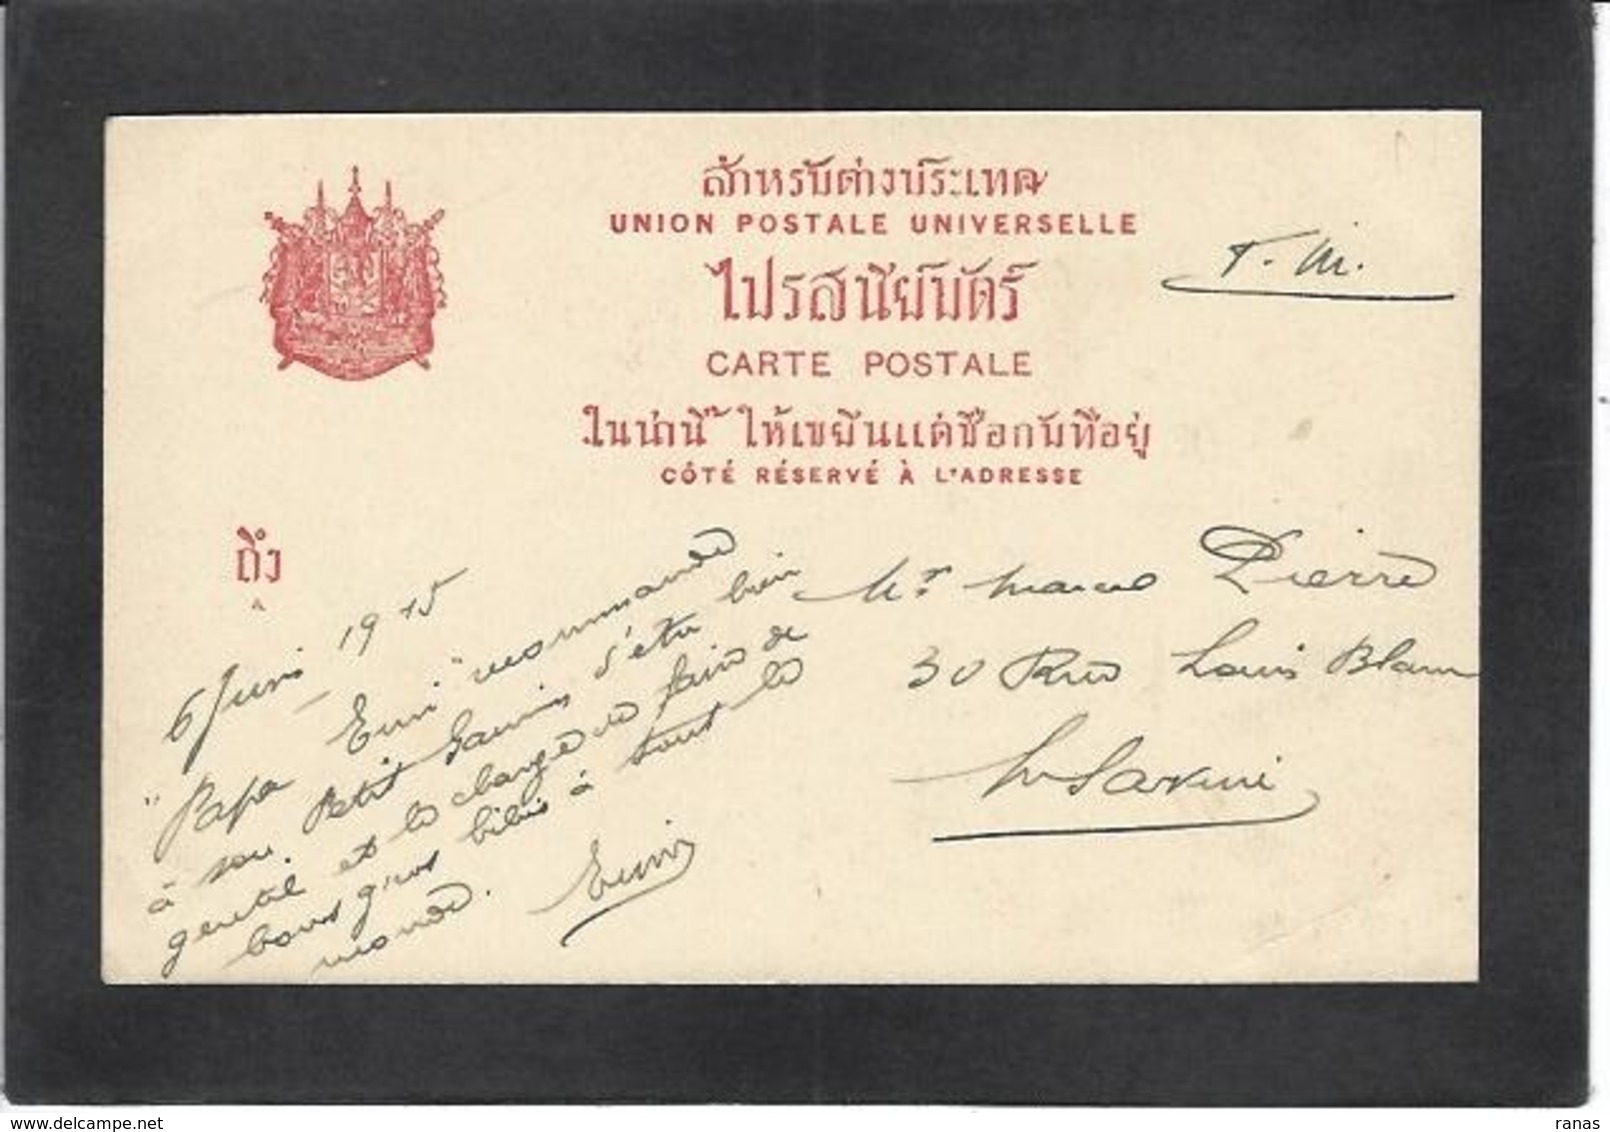 สำหรับต่างประเทศ
UNION POSTALE UNIVERSELLE
ไปรสนีย์บัตร์
CARTE POSTALE
ในน่านี้ ให้เขียนแต่ชื่อกับที่อยู่
CÔTÉ RÉSERVÉ À L'ADRESSE
F. M.
ถึง
6 Juin 1915
"Papa Emi" recommande
à son Petit d'être bien
gentil et le charge de faire de
bons gros bibis à tout le
monde.
Mr Marcel Pierre
30 Rue Louis Blanc
ranas